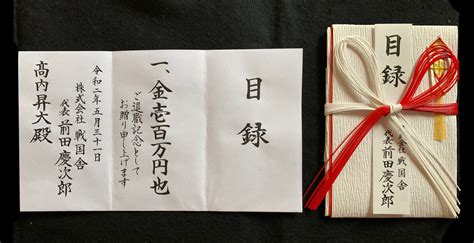 目録
一、金壱百万円也
ご退職記念として
お贈り申し上げます
令和二年五月三十一日
株式会社 戦国舎
代表 前田慶次郎
高内昇大殿
目録
会社 戦国舎
代表 前田慶次郎